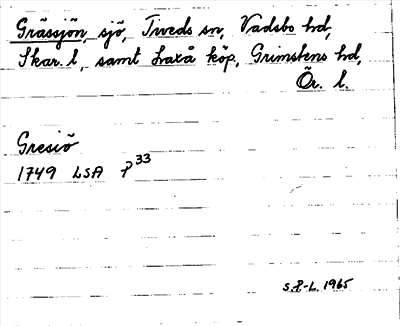 Grässjön, sjö, Tiveds sn, Vadsbo hd,
Skar. l, samt Laxå köp, Grimstens hd,
Ör. l.
Gresiö
1749 LSA P33
S.P-L. 1965